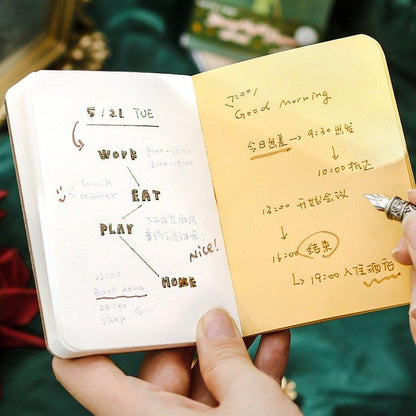 5/21 TUE
Work
9:00-12:00
lunch
dinner
EAT
PLAY
Nice!
HOME
22:00
Back home
23:00
sleep
7:00/
Good Morning
今日出差→9:30出发
↓
10:00抵达
12:00 开始会议
↓
16:00 结束
↳19:00入住酒店